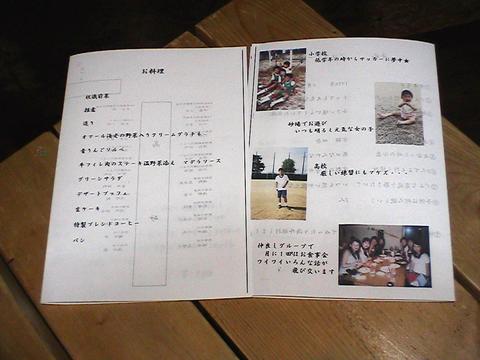 お料理
祝儀前菜
椀盛
造り
オマール海老の野菜入りクリームグラチネ
金うんごりんべ
牛フィレ肉のステーキ温野菜添え マデラソース
グリーンサラダ
デザートブッフェ
生ケーキ
特製ブレンドコーヒー
パン
小学校
低学年の時からサッカーに夢中★
砂場でお遊び
いつも明るく元気な女の子
高校
厳しい練習にもマケズ・・・
仲良しグループで
月に1回はお食事会
ワイワイいろんな話が
飛び交います